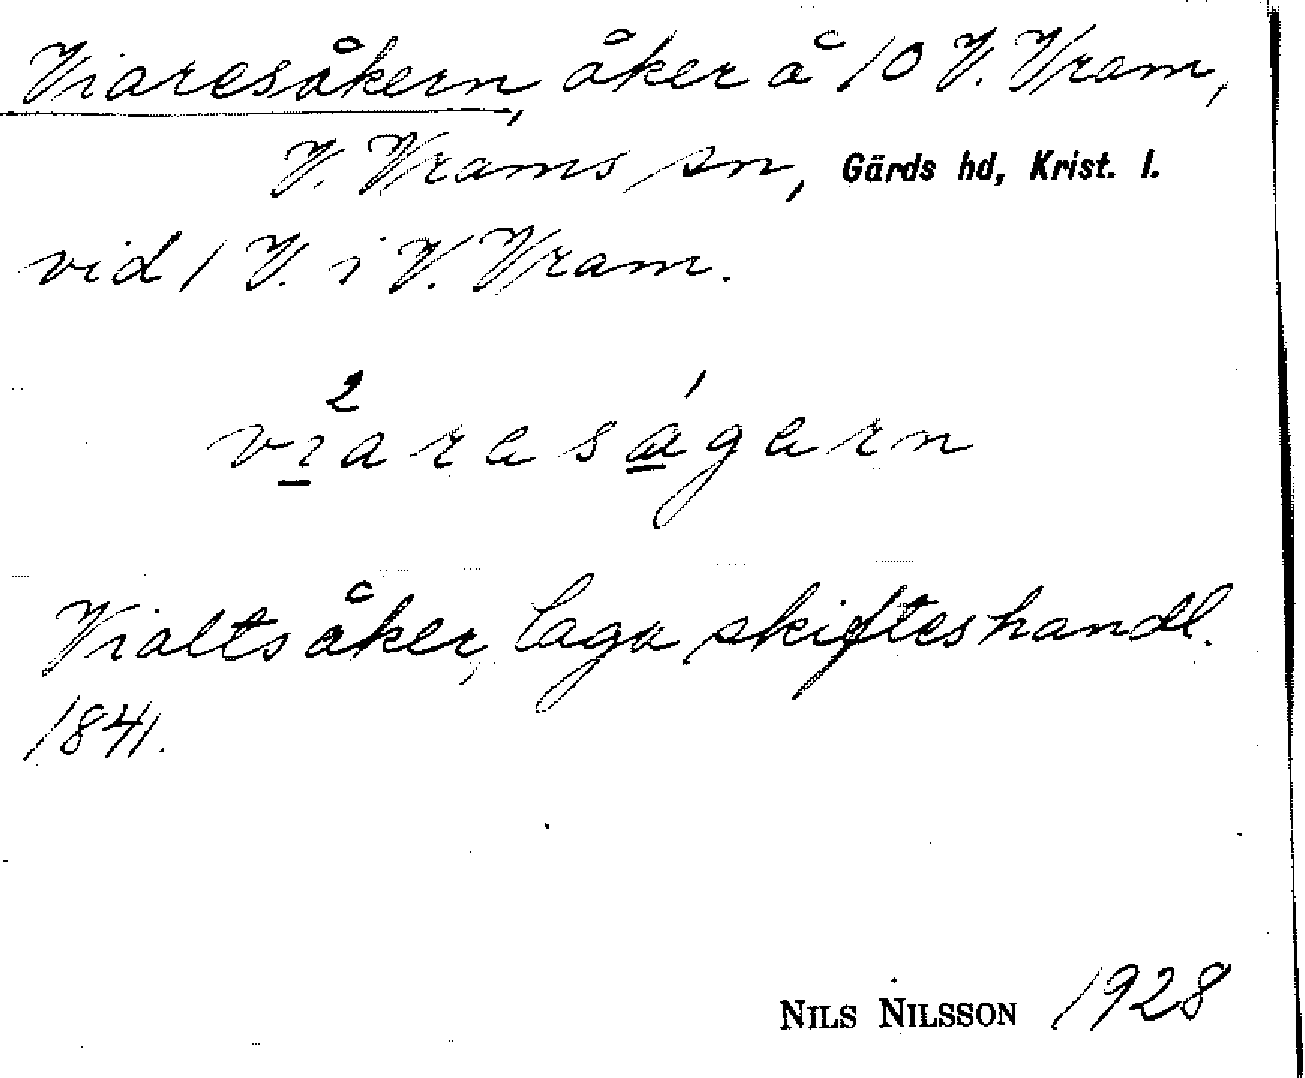 Viaresåkern, åker å 10 V. Vram,
V. Vrams sn, Gärds hd, Krist. l.
vid 1 V. i V. Vram.
2 ˊ
vıaresagern
Vialtsåker, laga skifteshandl.
1841.
NILS NILSSON 1928